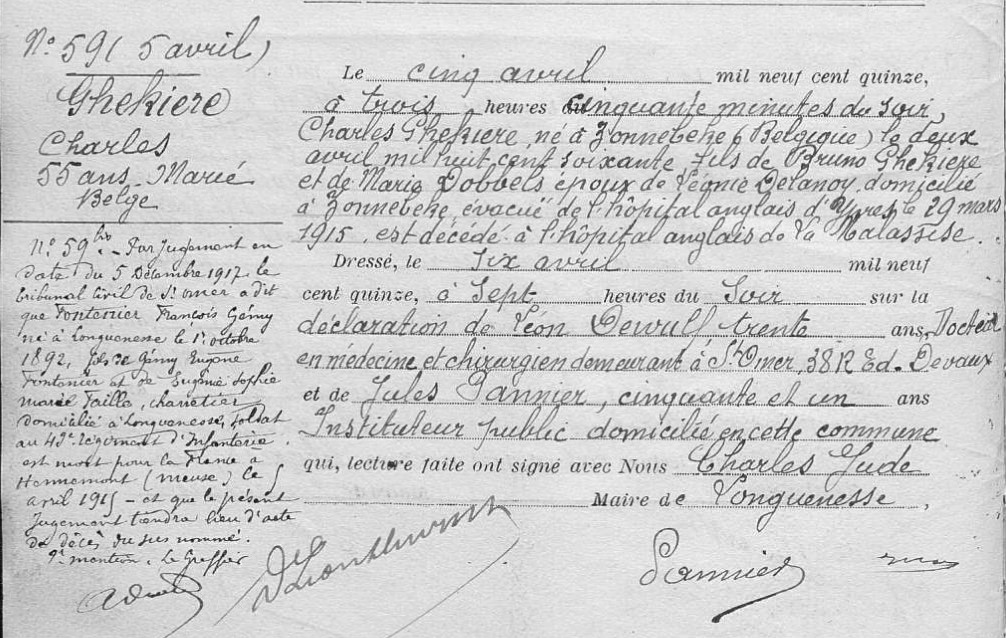 N° 59 ( 5 avril )
Ghekiere
Charles
55 ans Marié
Belge
Le cinq avril mil neuf cent quinze,
à trois heures du cinquante minutes du soir,
Charles Ghekiere, né à Zonnebeke (Belgique) le deux
avril mil huit cent soixante, fils de Bruno Ghekiere
et de Marie Dobbels époux de Léonie Delanoy, domicilié
à Zonnebeke, évacué de l'hôpital anglais d'Ypres le 29 mars
1915, est décédé à l'hôpital anglais de La Malassise.
Dressé, le six avril mil neuf
cent quinze, à Sept heures du Soir sur la
déclaration de Léon Dewulf trente ans, Docteur
en médecine et chirurgien demeurant à St Omer, 38 R Ed. Devaux
et de Jules Pannier, cinquante et un ans
Instituteur public domicilié en cette commune
qui, lecture faite ont signé avec Nous Charles Jude
Maire de Longuenesse,
N° 59 bis - Par Jugement en
date du 5 Décembre 1917 le
tribunal Civil de St omer a dit
que Fontenier François Gémy
né à Longuenesse le 1er octobre
1892, fils de Gémy Eugène
Fontenier et de Eugénie Sophie
marie Taille, charretier
domicilié à Longuenesse, soldat
au regiment d'Infanterie
est mort pour la France à
Hennemont (meuse) le 5
avril 1915 - et que le présent
Jugement tiendra lieu d'acte
de décès du sus nommé.
mention. Le Greffier
Pannier